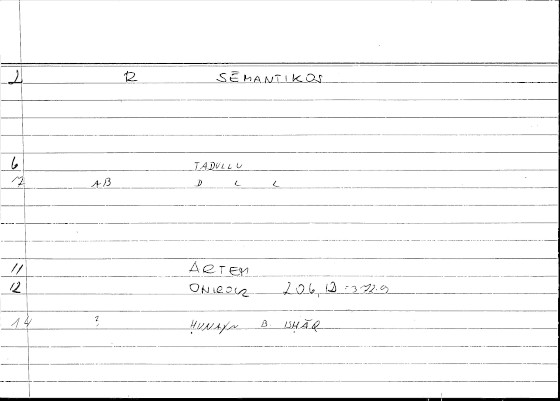 1 R SĒMANTIKOS
6 TADULLU
7 AB D L L
11 ARTEM
12 ONIROCR 206, 12
14 ? ḤUNAYN B. ISḤĀQ